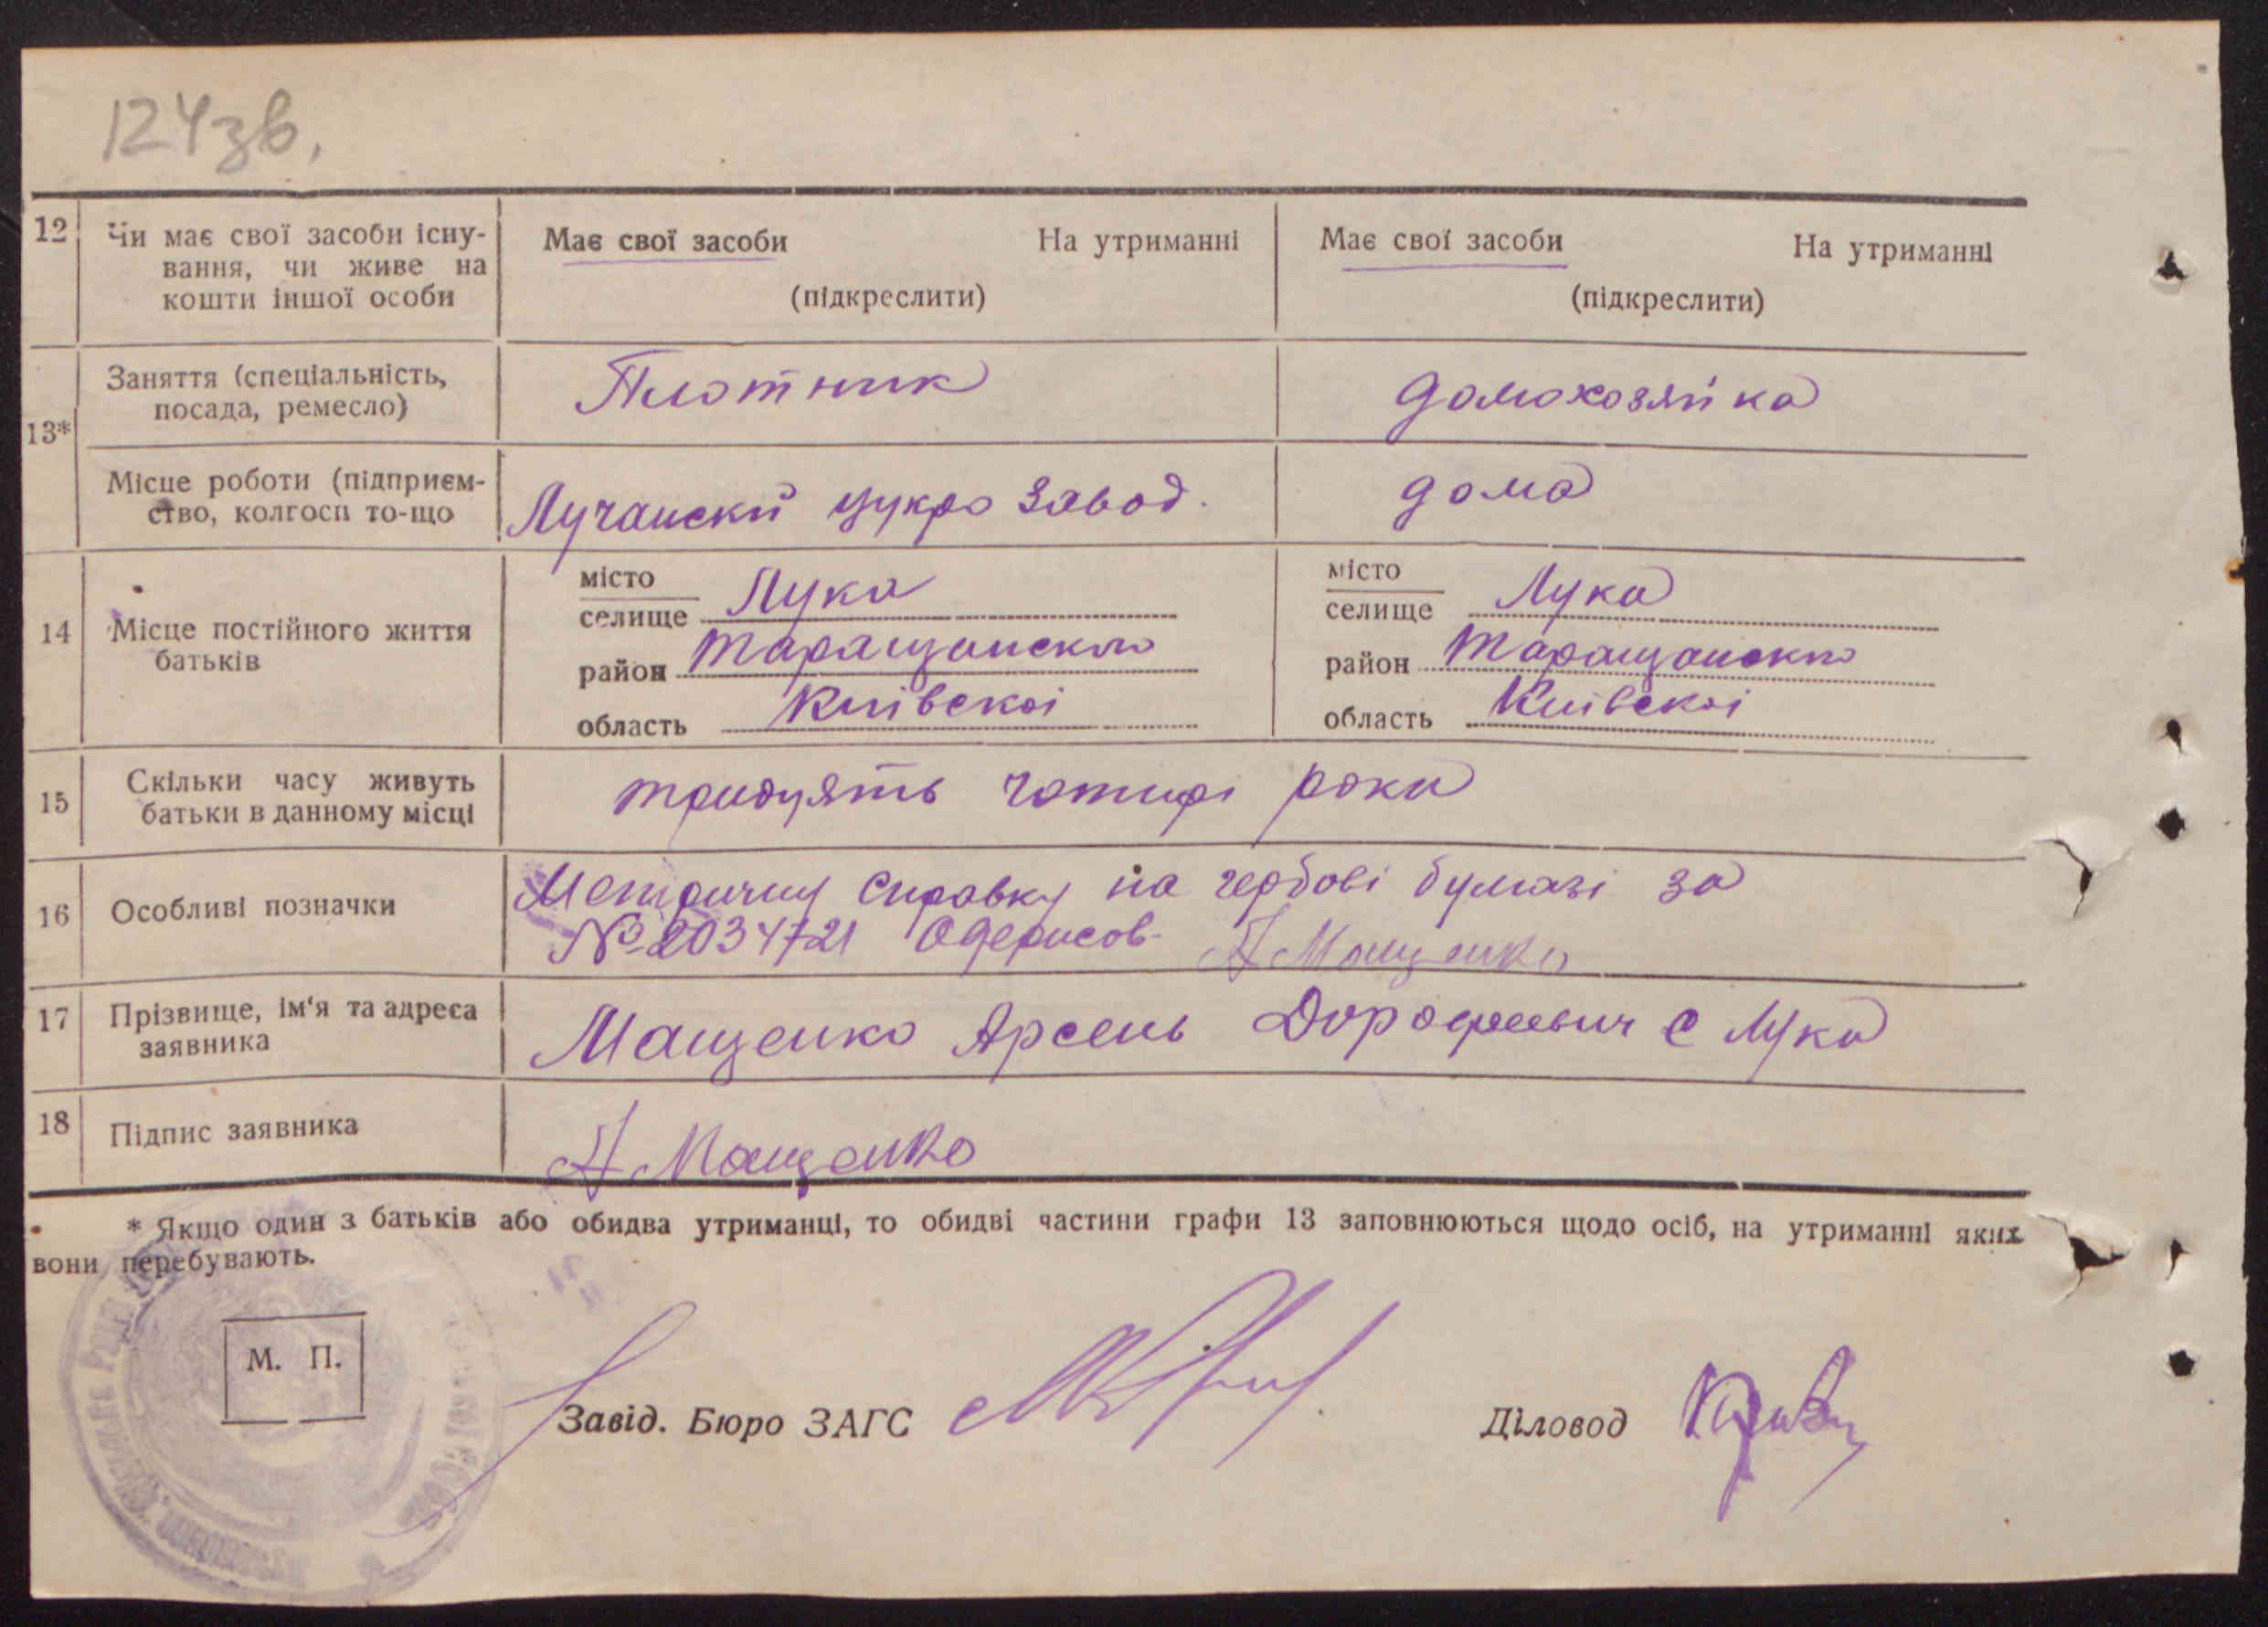 124зв.
12 Чи має свої засоби існу-
вання, чи живе на
кошти іншої особи
Має свої засоби На утриманні
(підкреслити)
Має свої засоби На утриманні
(підкреслити)
13*
Заняття (спеціальність,
посада, ремесло)
Плотник
домохозяйка
Місце роботи (підприєм-
ство, колгосп то-що
Лучанский цукро завод.
дома
14 Місце постійного життя
батьків
місто
селище Лука
район Таращанского
область Київскої
місто
селище Лука
район Таращанского
область Київскої
15 Скільки часу живуть
батьки в данному місці
тридцять чотирі роки
16 Особливі позначки
Метричну справку на гербові бумазі за
№ 2034721 Одерисов А Мащенко
17 Прізвище, ім'я та адреса
заявника
Мащенко Арсень Дорофеевич с Лука
18 Підпис заявника
А Мащенко
* Якщо один з батьків або обидва утриманці, то обидві частини графи 13 заповнюються щодо осіб, на утриманні яких
вони перебувають.
М. П.
Завід. Бюро ЗАГС
Діловод